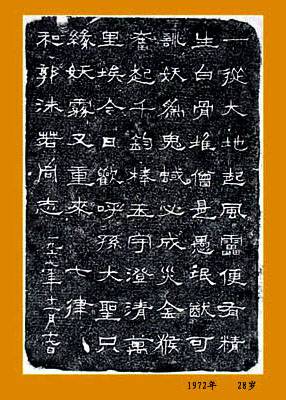 一從大地起風雷便有精
生白骨堆僧是愚氓猶可
訓妖為鬼蜮必成災金猴
奮起千鈞棒玉宇澄清萬
里埃今日歡呼孫大聖只
緣妖霧又重來 七律
和郭沫若同志 一九六一年十一月十七日
1972年 28岁